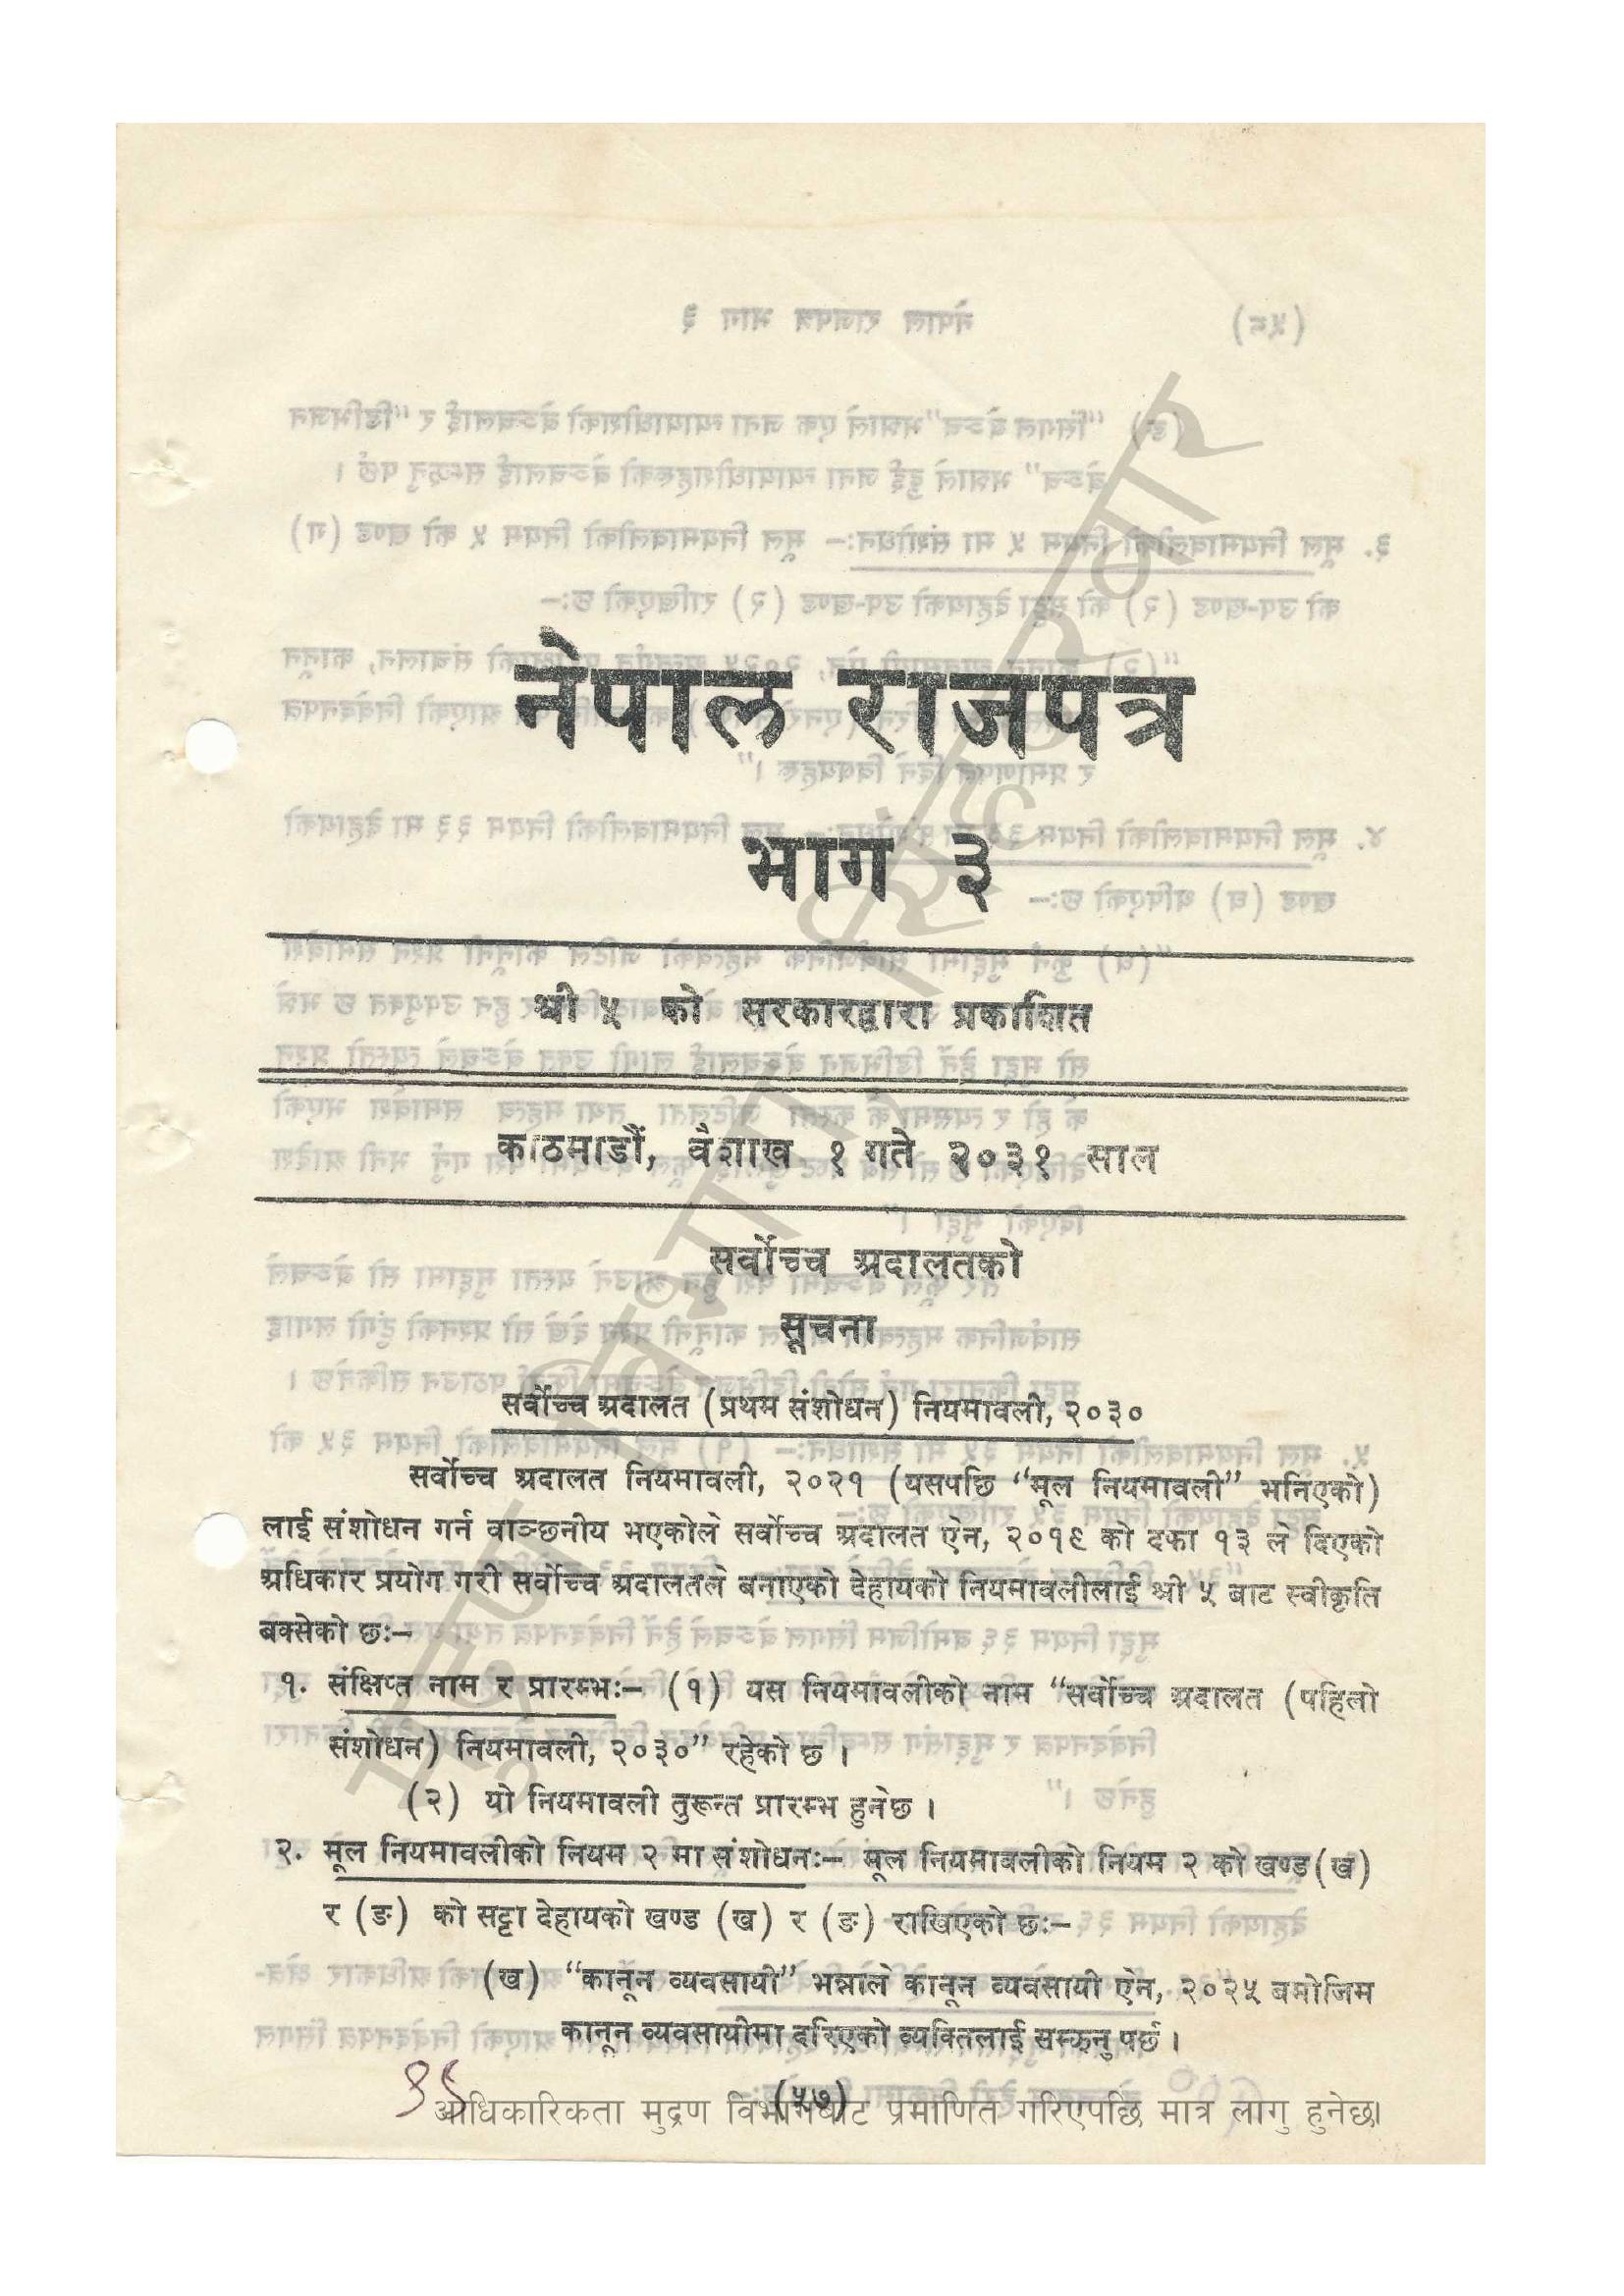 नेपाल राजपत्र
भाग ३
श्री ५ को सरकारद्वारा प्रकाशित
काठमाडौं, वैशाख १ गते २०३१ साल
सर्वोच्च अदालतको
सूचना
सर्वोच्च अदालत (प्रथम संशोधन) नियमावली, २०३०
सर्वोच्च अदालत नियमावली, २०२१ (यसपछि “मूल नियमावली” भनिएको)
लाई संशोधन गर्न वाञ्छनीय भएकोले सर्वोच्च अदालत ऐन, २०१९ को दफा १३ ले दिएको
अधिकार प्रयोग गरी सर्वोच्च अदालतले बनाएको देहायको नियमावलीलाई श्री ५ बाट स्वीकृति
बक्सेको छः–
१. संक्षिप्त नाम र प्रारम्भः– (१) यस नियमावलीको नाम “सर्वोच्च अदालत (पहिलो
संशोधन) नियमावली, २०३०” रहेको छ ।
(२) यो नियमावली तुरून्त प्रारम्भ हुनेछ ।
२. मूल नियमावलीको नियम २ मा संशोधनः– मूल नियमावलीको नियम २ को खण्ड(ख)
र (ङ) को सट्टा देहायको खण्ड (ख) र (ङ) राखिएको छः–
(ख) “कानून व्यवसायी” भन्नाले कानून व्यवसायी ऐन, २०२५ बमोजिम
कानून व्यवसायीमा दरिएको व्यक्तिलाई सम्झनु पर्छ ।
(५७)
आधिकारिकता मुद्रण विभागबाट प्रमाणित गरिएपछि मात्र लागु हुनेछ।